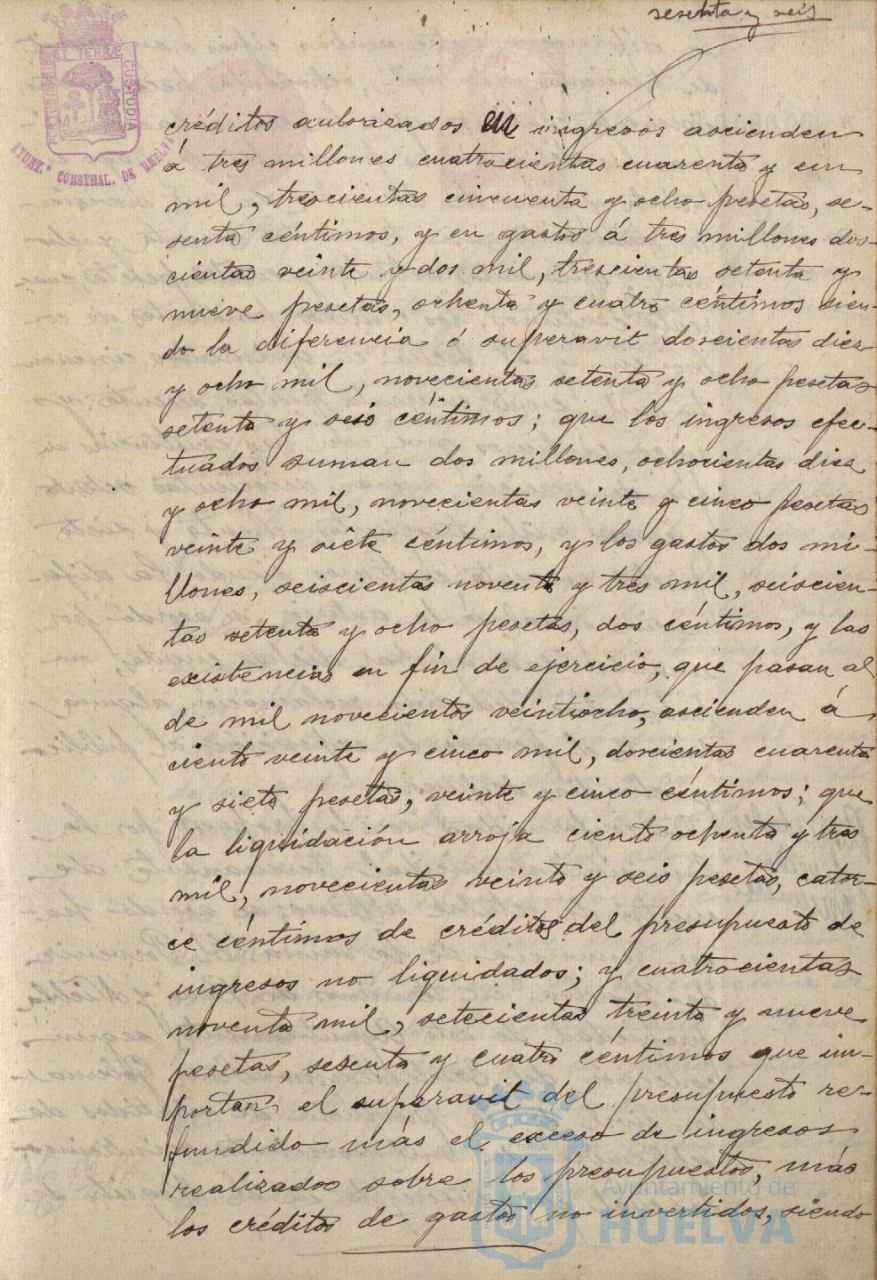 sesenta y seis
ET TERRAE
CUSTODIA
AYUNT.º CONSTNAL. DE HUELVA
créditos autorizados en ingresos ascienden
á tres millones cuatrocientas cuarenta y un
mil, trescientas cincuenta y ocho pesetas, se-
senta céntimos, y en gastos á tres millones dos-
cientas veinte y dos mil, trescientas setenta y
nueve pesetas, ochenta y cuatro céntimos sien-
do la diferencia ó superavit doscientas diez
y ocho mil, novecientas setenta y ocho pesetas
setenta y seis céntimos; que los ingresos efec-
tuados suman dos millones, ochocientas diez
y ocho mil, novecientas veinte y cinco pesetas
veinte y siete céntimos, y los gastos dos mi-
llones, seiscientas noventa y tres mil, seiscien-
tas setenta y ocho pesetas, dos céntimos, y las
existencias en fin de ejercicio, que pasan al
de mil novecientos veintiocho, ascienden á
ciento veinte y cinco mil, doscientas cuarenta
y siete pesetas, veinte y cinco céntimos; que
la liquidación arroja ciento ochenta y tres
mil, novecientas veinte y seis pesetas, cator-
ce céntimos de créditos del presupuesto de
ingresos no liquidados; y cuatrocientas
noventa mil, setecientas treinta y nueve
pesetas, sesenta y cuatro céntimos que im-
portan el superavit del presupuesto re-
fundido más el exceso de ingresos
realizados sobre los presupuestos, más
los créditos de gastos no invertidos, siendo
Ayuntamiento de
HUELVA